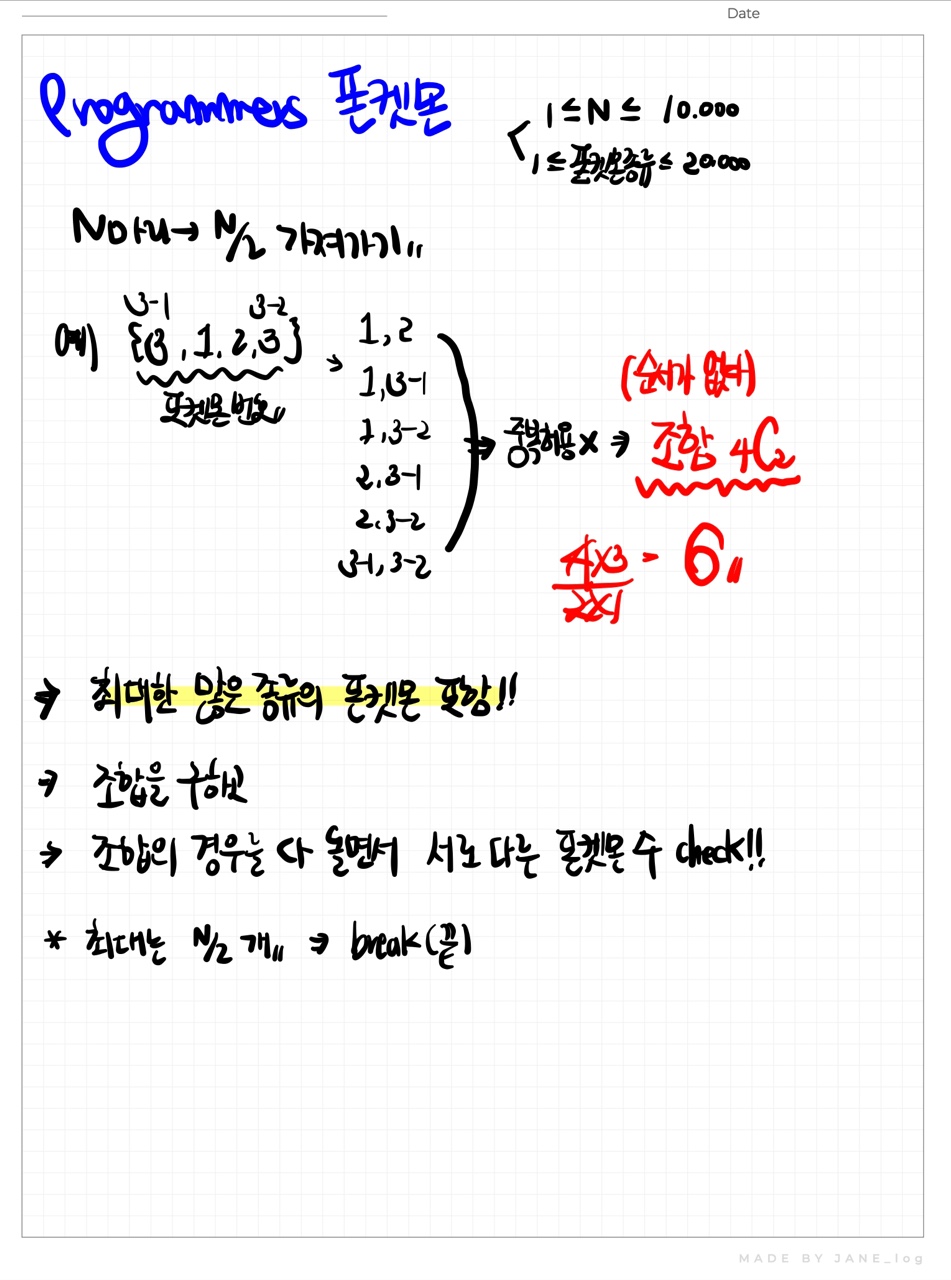 Date
Programmers 폰켓몬
1 ≤ N ≤ 10.000
1 ≤ 폰켓몬종류 ≤ 20.000
N마리 → N/2 가져가기〃
3-1 3-2
예) {3, 1, 2, 3}
폰켓몬 번호〃
→ 1, 2
1, 3-1
1, 3-2
2, 3-1
2, 3-2
3-1, 3-2
⇒ 중복허용 X ⇒ 조합 4C2
(순서가 없다)
4×3
2×1
= 6〃
⇒ 최대한 많은 종류의 폰켓몬 포함!!
⇒ 조합을 구하고
⇒ 조합의 경우를 다 돌면서 서로 다른 폰켓몬 수 check!!
* 최대는 N/2 개〃 ⇒ break (끝)
MADE BY JANE_log